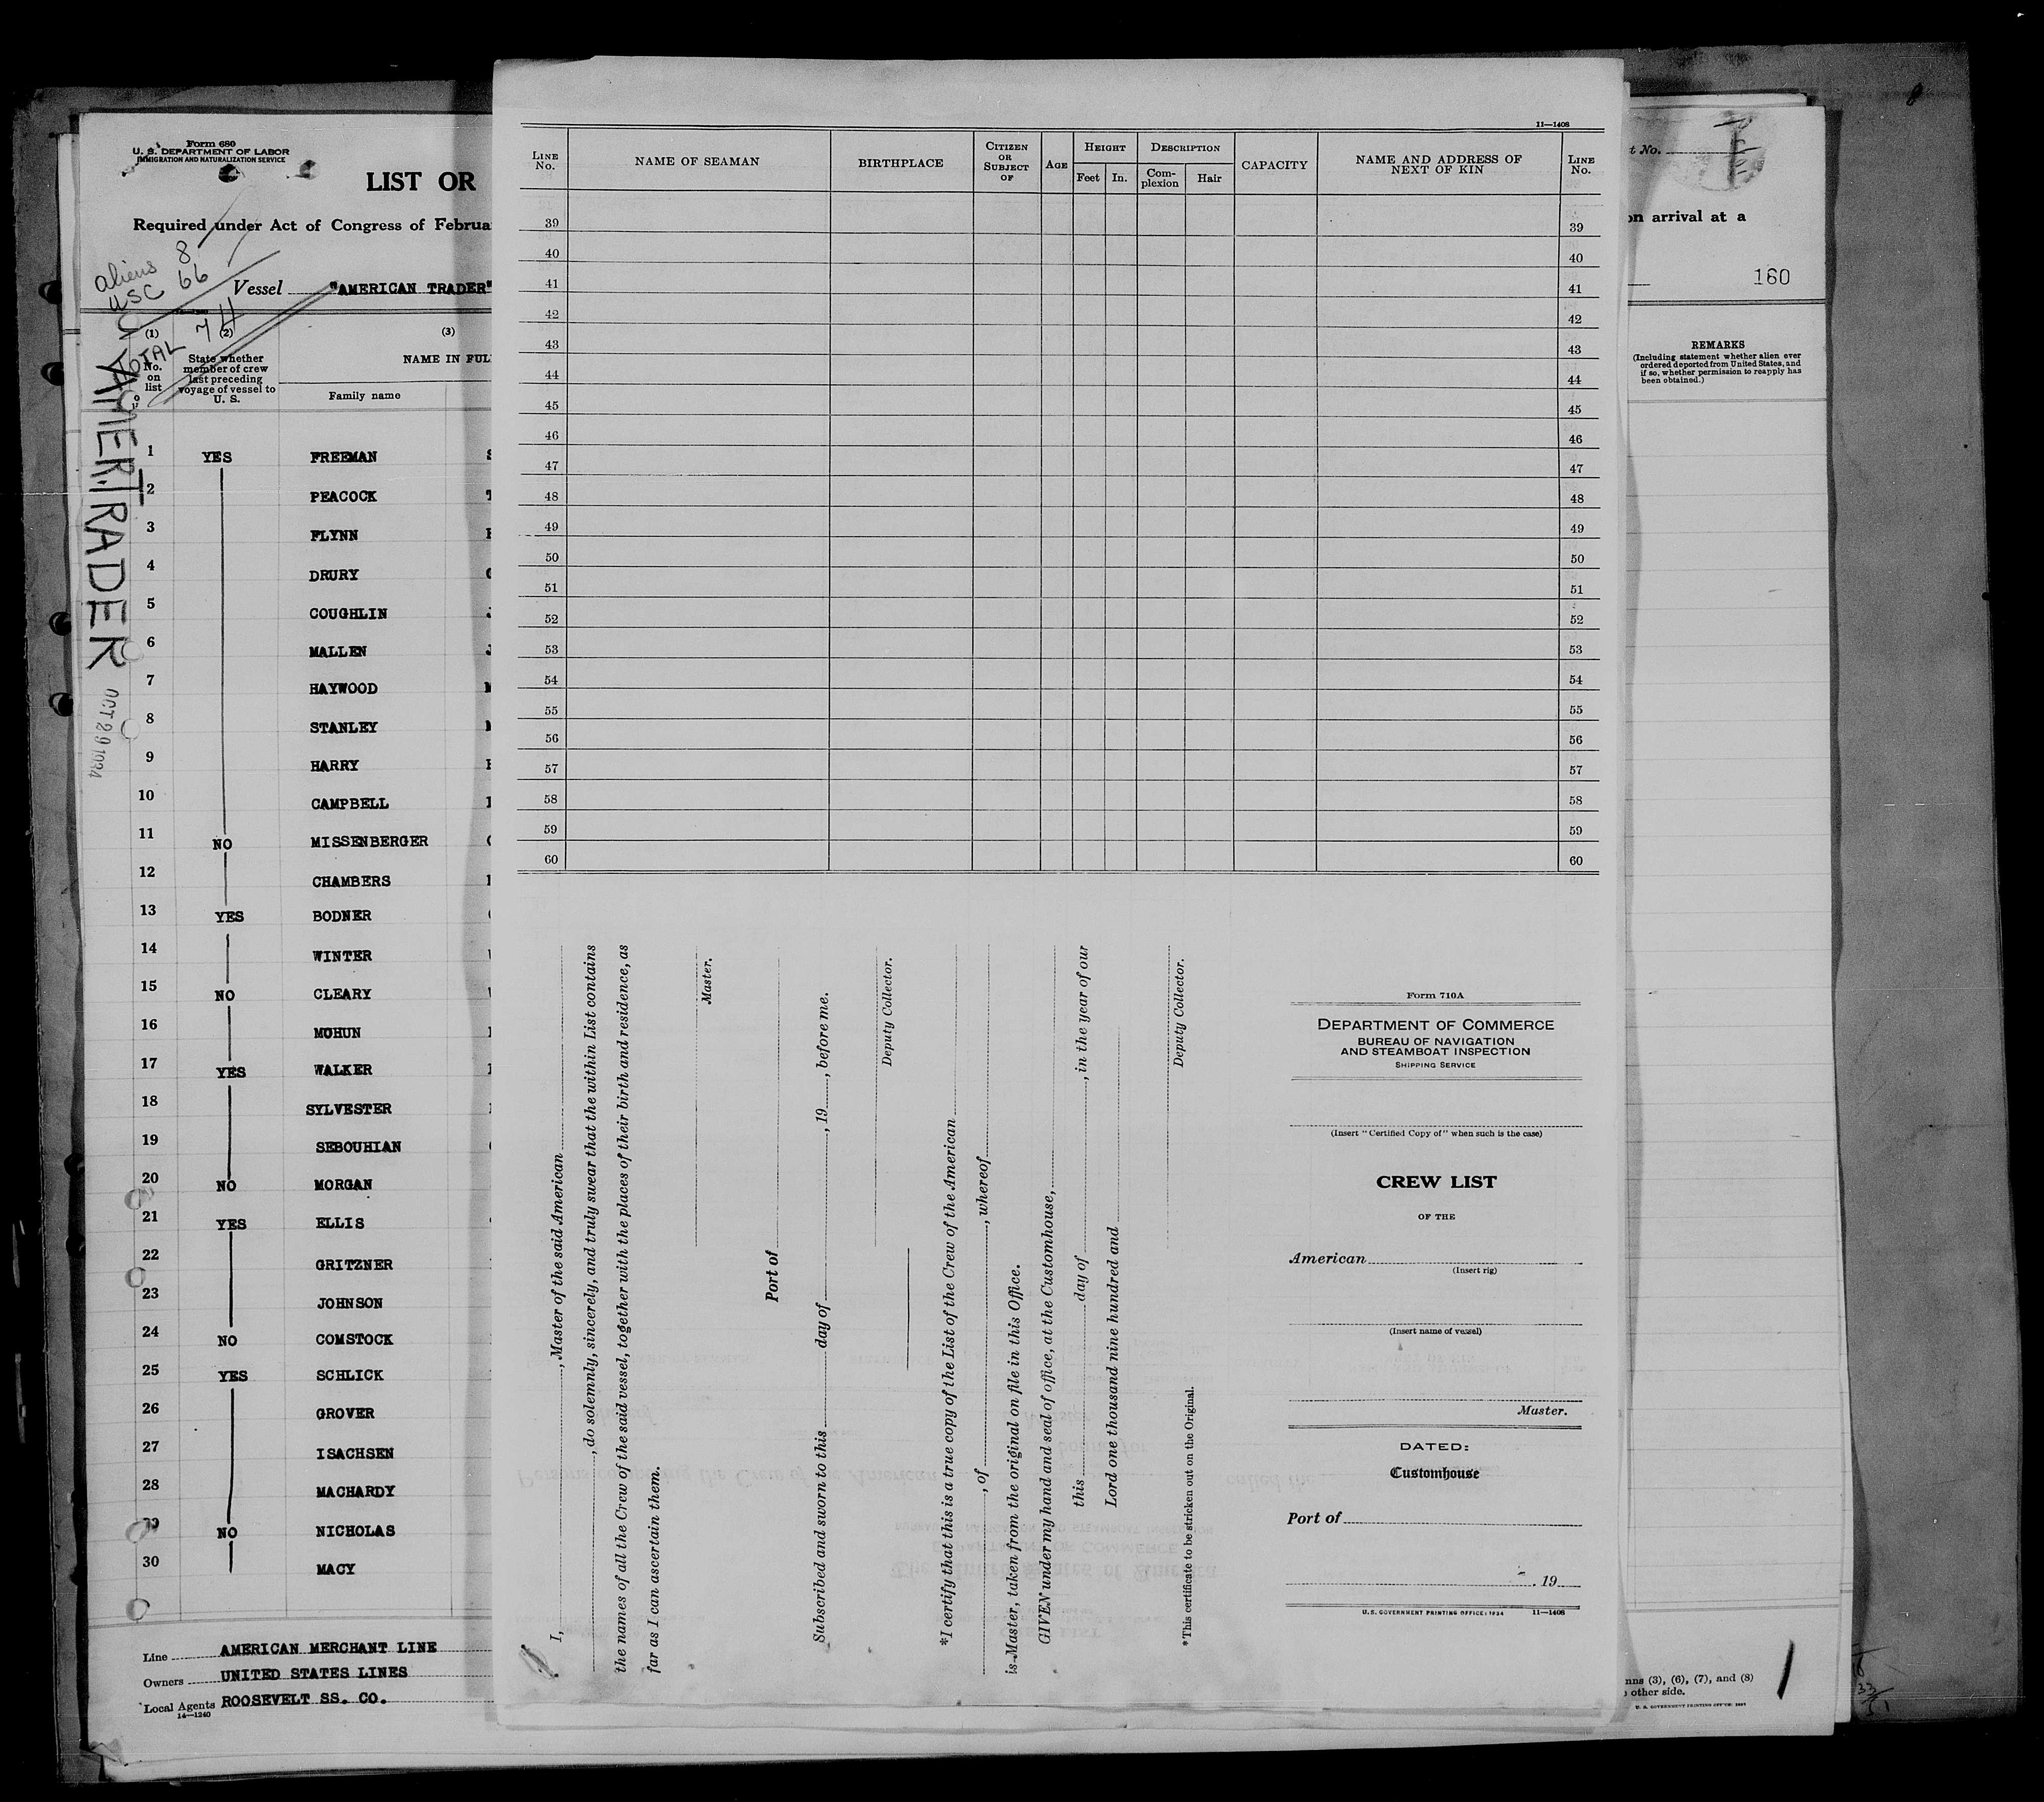 Form 680
U. S. DEPARTMENT OF LABOR
IMMIGRATION AND NATURALIZATION SERVICE
LIST OR
Required under Act of Congress of Februa
aliens 8
USC 66
TOTAL 74
Vessel "AMERICAN TRADER"
AMER. TRADER
OCT 29 1934
(1) (2) (3)
No. on list
State whether member of crew last preceding voyage of vessel to U. S.
NAME IN FUL
Family name
1 YES FREEMAN
2 PEACOCK
3 FLYNN
4 DRURY
5 COUGHLIN
6 MALLEN
7 HAYWOOD
8 STANLEY
9 HARRY
10 CAMPBELL
11 NO MISSENBERGER
12 CHAMBERS
13 YES BODNER
14 WINTER
15 NO CLEARY
16 MOHUN
17 YES WALKER
18 SYLVESTER
19 SEBOUHIAN
20 NO MORGAN
21 YES ELLIS
22 GRITZNER
23 JOHNSON
24 NO COMSTOCK
25 YES SCHLICK
26 GROVER
27 ISACHSEN
28 MACHARDY
29 NO NICHOLAS
30 MACY
Line AMERICAN MERCHANT LINE
Owners UNITED STATES LINES
Local Agents ROOSEVELT SS. CO.
14—1240
11—1408
LINE No. NAME OF SEAMAN BIRTHPLACE CITIZEN OR SUBJECT OF AGE HEIGHT Feet In. DESCRIPTION Complexion Hair CAPACITY NAME AND ADDRESS OF NEXT OF KIN LINE No.
39 39
40 40
41 41
42 42
43 43
44 44
45 45
46 46
47 47
48 48
49 49
50 50
51 51
52 52
53 53
54 54
55 55
56 56
57 57
58 58
59 59
60 60
I, , Master of the said American
, do solemnly, sincerely, and truly swear that the within List contains
the names of all the Crew of the said vessel, together with the places of their birth and residence, as
far as I can ascertain them.
Master.
Port of
Subscribed and sworn to this day of , 19 , before me.
Deputy Collector.
*I certify that this is a true copy of the List of the Crew of the American
, of , whereof
is Master, taken from the original on file in this Office.
GIVEN under my hand and seal of office, at the Customhouse,
this day of , in the year of our
Lord one thousand nine hundred and
Deputy Collector.
*This certificate to be stricken out on the Original.
Form 710A
DEPARTMENT OF COMMERCE
BUREAU OF NAVIGATION
AND STEAMBOAT INSPECTION
SHIPPING SERVICE
(Insert "Certified Copy of" when such is the case)
CREW LIST
OF THE
American
(Insert rig)
(Insert name of vessel)
Master.
DATED:
Customhouse
Port of
, 19
U. S. GOVERNMENT PRINTING OFFICE: 1934 11—1408
8
t No.
on arrival at a
160
REMARKS
(Including statement whether alien ever
ordered deported from United States, and
if so, whether permission to reapply has
been obtained.)
mns (3), (6), (7), and (8)
other side.
U. S. GOVERNMENT PRINTING OFFICE: 1934